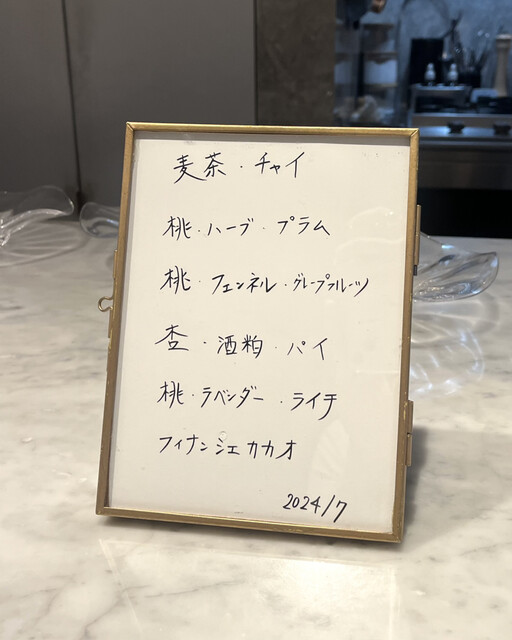 麦茶・チャイ
桃・ハーブ・プラム
桃・フェンネル・グレープフルーツ
杏・酒粕・パイ
桃・ラベンダー・ライチ
フィナンシェカカオ
2024/7